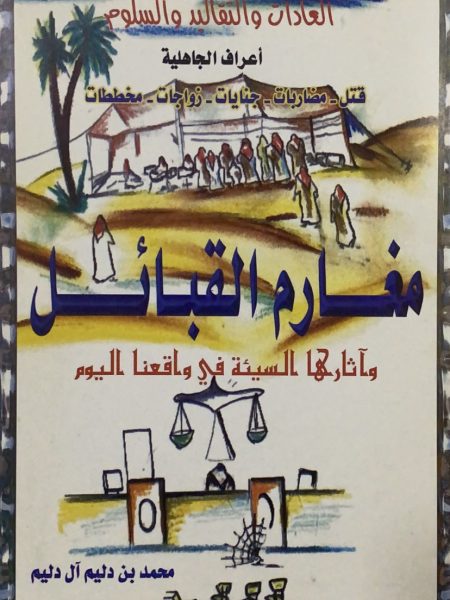 العادات والتقاليد والسلوم
أعراف الجاهلية
قتل - مضاربات - جنايات - زواجات - مخططات
مغارم القبائل
وآثارها السيئة في واقعنا اليوم
محمد بن دليم آل دليم